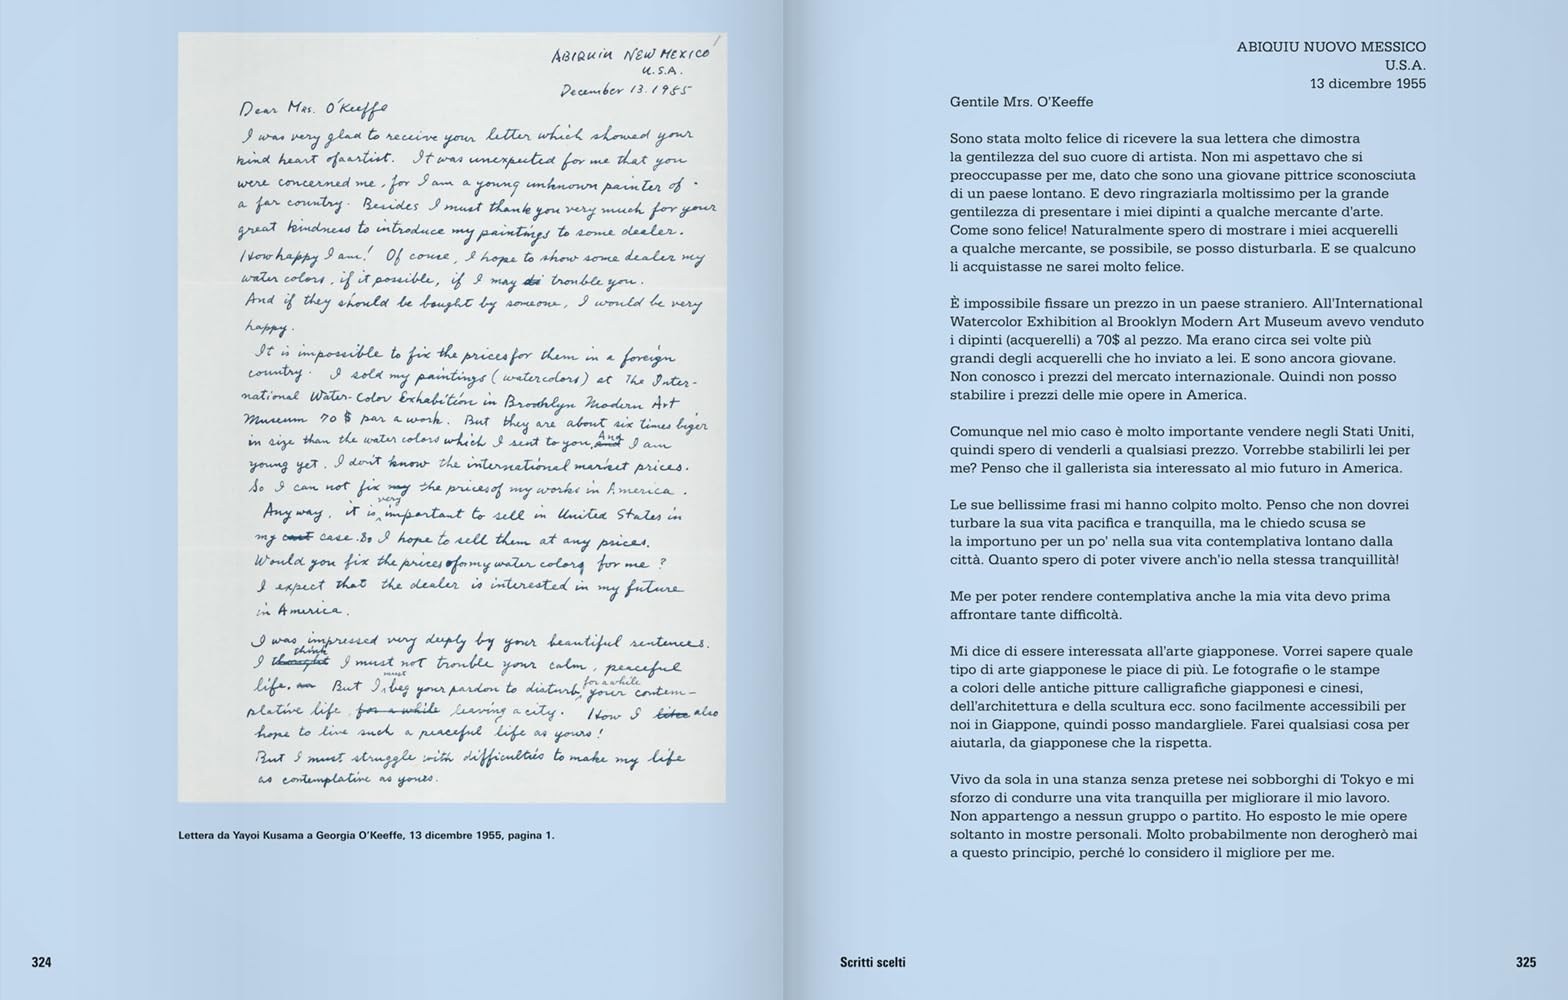 ABIQUIU NEW MEXICO
U.S.A.
December 13. 1955
Dear Mrs. O'Keeffe
I was very glad to receive your letter which showed your
kind heart of a artist. It was unexpected for me that you
were concerned me, for I am a young unknown painter of
a far country. Besides I must thank you very much for your
great kindness to introduce my paintings to some dealer.
How happy I am! Of couse, I hope to show some dealer my
water colors, if it possible, if I may trouble you.
And if they should be bought by someone, I would be very
happy.
It is impossible to fix the prices for them in a foreign
country. I sold my paintings (watercolors) at The Inter-
national Water-Color Exhabition in Brooklyn Modern Art
Museum 70 $ par a work. But they are about six times biger
in size than the water colors which I sent to you. And I am
young yet. I don't know the international market prices.
So I can not fix my the prices of my works in America.
Anyway, it is very important to sell in United States in
my case. So I hope to sell them at any prices.
Would you fix the prices of my water colors for me?
I expect that the dealer is interested in my future
in America.
I was impressed very deeply by your beautiful sentences.
I thought think I must not trouble your calm, peaceful
life. But I must beg your pardon to disturb for a while your contem-
plative life for a while leaving a city. How I also
hope to live such a peaceful life as yours!
But I must struggle with difficulties to make my life
as contemplative as yours.
Lettera da Yayoi Kusama a Georgia O'Keeffe, 13 dicembre 1955, pagina 1.
324
ABIQUIU NUOVO MESSICO
U.S.A.
13 dicembre 1955
Gentile Mrs. O'Keeffe
Sono stata molto felice di ricevere la sua lettera che dimostra
la gentilezza del suo cuore di artista. Non mi aspettavo che si
preoccupasse per me, dato che sono una giovane pittrice sconosciuta
di un paese lontano. E devo ringraziarla moltissimo per la grande
gentilezza di presentare i miei dipinti a qualche mercante d'arte.
Come sono felice! Naturalmente spero di mostrare i miei acquerelli
a qualche mercante, se possibile, se posso disturbarla. E se qualcuno
li acquistasse ne sarei molto felice.
È impossibile fissare un prezzo in un paese straniero. All'International
Watercolor Exhibition al Brooklyn Modern Art Museum avevo venduto
i dipinti (acquerelli) a 70$ al pezzo. Ma erano circa sei volte più
grandi degli acquerelli che ho inviato a lei. E sono ancora giovane.
Non conosco i prezzi del mercato internazionale. Quindi non posso
stabilire i prezzi delle mie opere in America.
Comunque nel mio caso è molto importante vendere negli Stati Uniti,
quindi spero di venderli a qualsiasi prezzo. Vorrebbe stabilirli lei per
me? Penso che il gallerista sia interessato al mio futuro in America.
Le sue bellissime frasi mi hanno colpito molto. Penso che non dovrei
turbare la sua vita pacifica e tranquilla, ma le chiedo scusa se
la importuno per un po' nella sua vita contemplativa lontano dalla
città. Quanto spero di poter vivere anch'io nella stessa tranquillità!
Me per poter rendere contemplativa anche la mia vita devo prima
affrontare tante difficoltà.
Mi dice di essere interessata all'arte giapponese. Vorrei sapere quale
tipo di arte giapponese le piace di più. Le fotografie o le stampe
a colori delle antiche pitture calligrafiche giapponesi e cinesi,
dell'architettura e della scultura ecc. sono facilmente accessibili per
noi in Giappone, quindi posso mandargliele. Farei qualsiasi cosa per
aiutarla, da giapponese che la rispetta.
Vivo da sola in una stanza senza pretese nei sobborghi di Tokyo e mi
sforzo di condurre una vita tranquilla per migliorare il mio lavoro.
Non appartengo a nessun gruppo o partito. Ho esposto le mie opere
soltanto in mostre personali. Molto probabilmente non derogherò mai
a questo principio, perché lo considero il migliore per me.
Scritti scelti
325